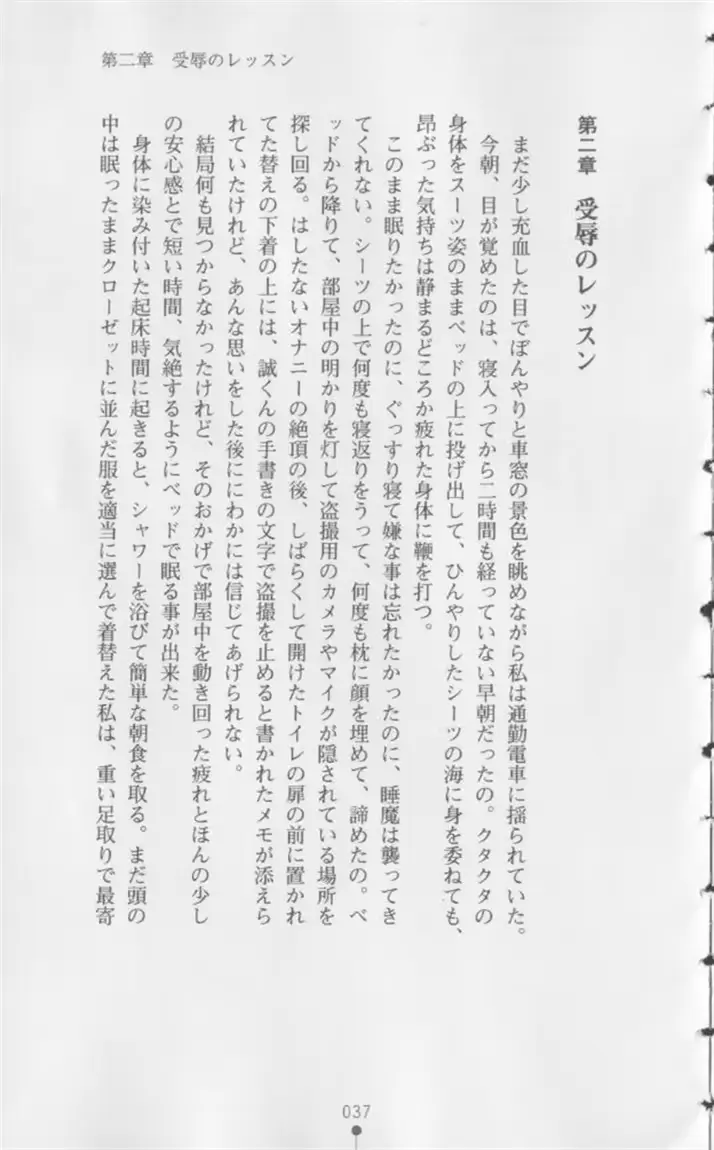 第二章　受辱のレッスン
第二章　受辱のレッスン
まだ少し充血した目でぼんやりと車窓の景色を眺めながら私は通勤電車に揺られていた。
今朝、目が覚めたのは、寝入ってから二時間も経っていない早朝だったの。クタクタの
身体をスーツ姿のままベッドの上に投げ出して、ひんやりしたシーツの海に身を委ねても、
昂ぶった気持ちは静まるどころか疲れた身体に鞭を打つ。
このまま眠りたかったのに、ぐっすり寝て嫌な事は忘れたかったのに、睡魔は襲ってき
てくれない。シーツの上で何度も寝返りをうって、何度も枕に顔を埋めて、諦めたの。ベ
ッドから降りて、部屋中の明かりを灯して盗撮用のカメラやマイクが隠されている場所を
探し回る。はしたないオナニーの絶頂の後、しばらくして開けたトイレの扉の前に置かれ
てた替えの下着の上には、誠くんの手書きの文字で盗撮を止めると書かれたメモが添えら
れていたけれど、あんな思いをした後ににわかには信じてあげられない。
結局何も見つからなかったけれど、そのおかげで部屋中を動き回った疲れとほんの少し
の安心感とで短い時間、気絶するようにベッドで眠る事が出来た。
身体に染み付いた起床時間に起きると、シャワーを浴びて簡単な朝食を取る。まだ頭の
中は眠ったままクローゼットに並んだ服を適当に選んで着替えた私は、重い足取りで最寄
037